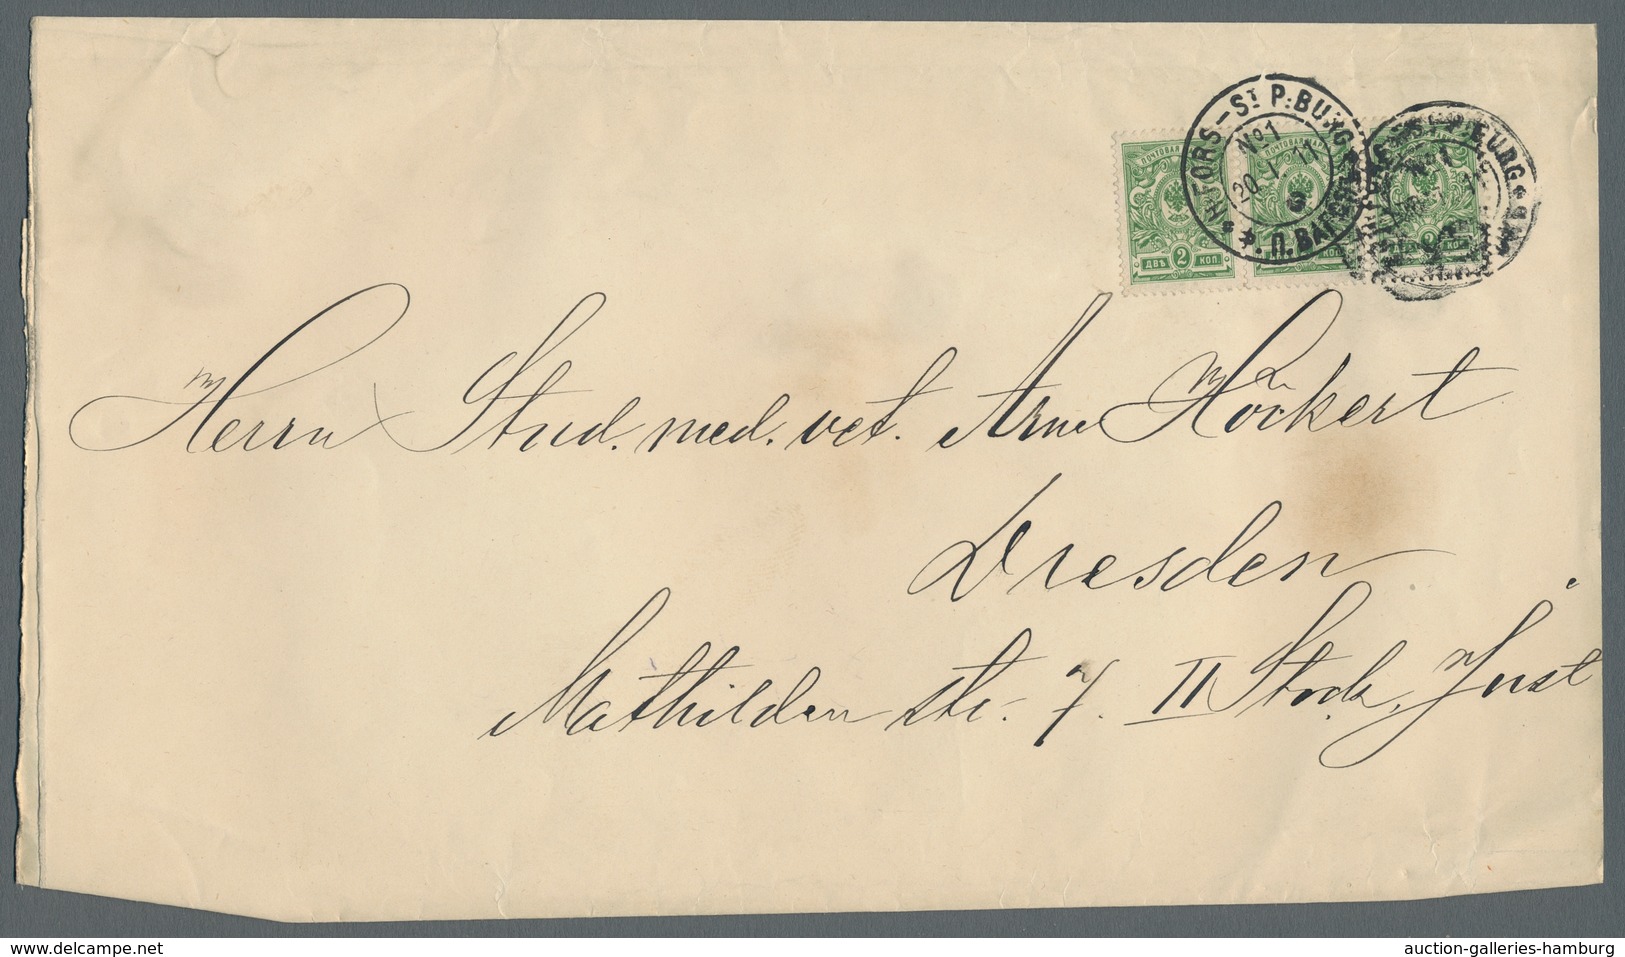 H:FORS–Sт P:BURG
№1
20. I. 11
3
*Ф.П.ВАГОНЪ*
ПОЧТОВАЯ
ДВѢ 2 КОП.
КОП.
2 КОП.
P:BURG
Herrn Stud. med. vet. Arne Höckert
Dresden
Mathilden str. 7. II Stock,
delcampe.net
auction-galleries-hamburg